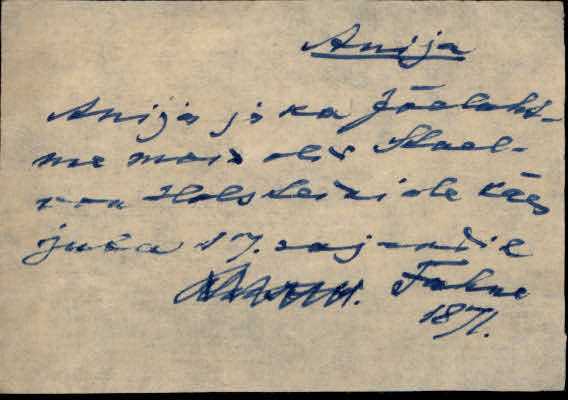 Anija
Anija ja ka Jõelaht-
me mois olid Stael-
von Holsteinide käes
juba 17. sajandil
Fahne
1871.